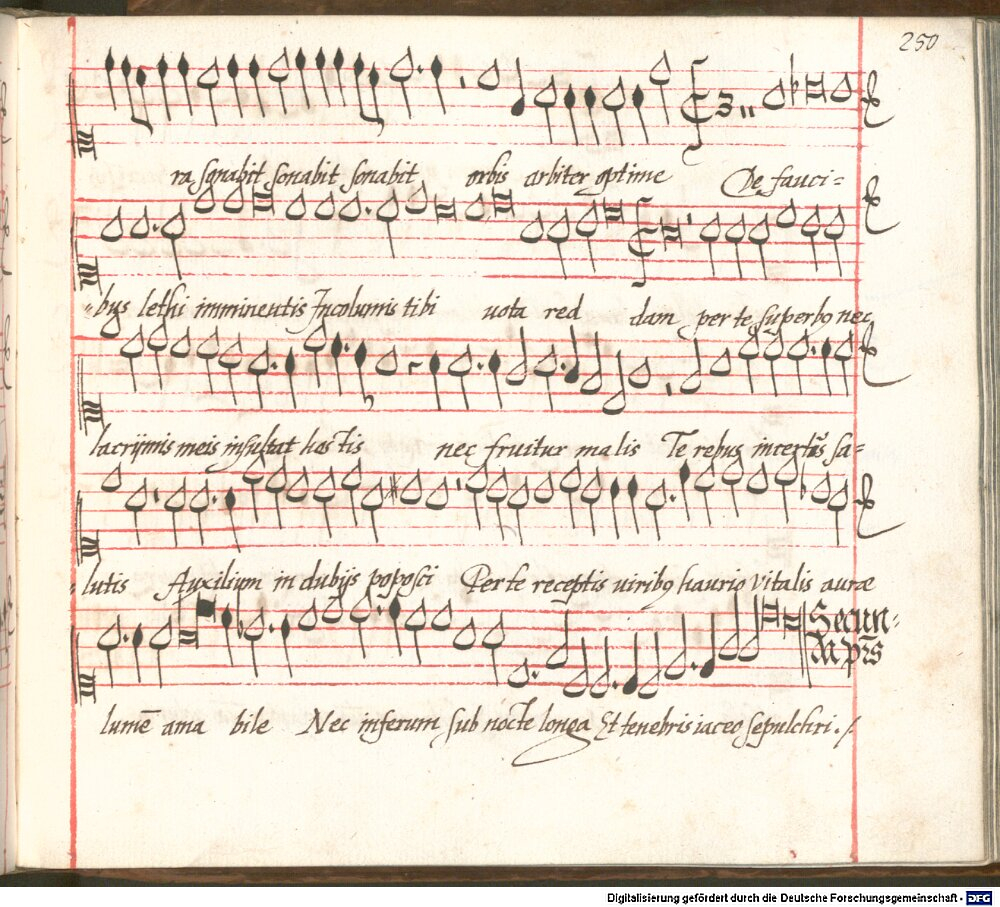 250
ra sonabit sonabit sonabit orbis arbiter optime De fauci=
=bus lethi imminentis Incolumis tibi uota red dam per te superbꝯ nec
lacrijmis meis insultat hostis nec fruitur malis Te rebus incertis sa=
=lutis Auxilium in dubijs poposci Per te receptis uiribꝯ haurio vitalis auræ
Secun=
da prs
lumē ama bile Nec inferum sub nocte longa Et tenebris iaceo sepulchri ./
Digitalisierung gefördert durch die Deutsche Forschungsgemeinschaft - DFG